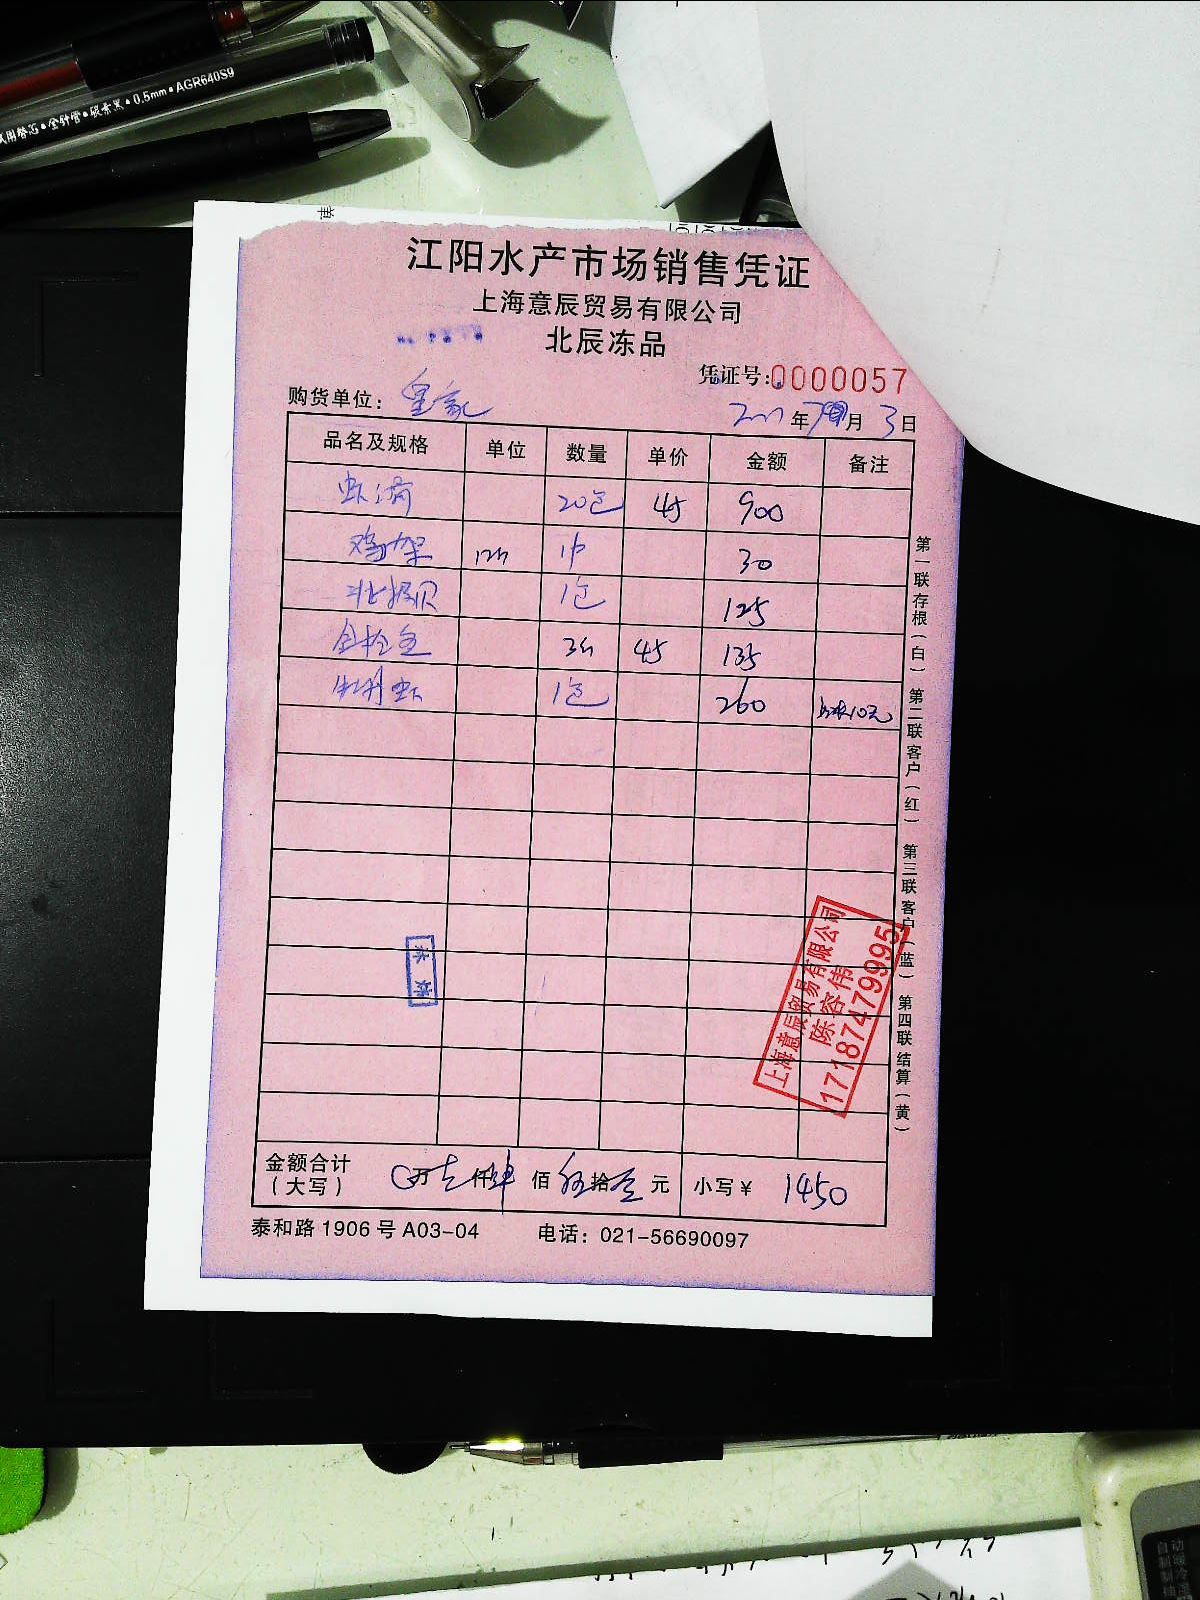 试用替芯•全针管•碳素黑•0.5mm•AGR640S9
江阳水产市场销售凭证
上海意辰贸易有限公司
北辰冻品
凭证号:0000057
购货单位: 皇家
年 月 3日
品名及规格 单位 数量 单价 金额 备注
虾滑 20包 45 900
鸡架 30
北极贝 1包 125
金枪鱼 45 135
牡丹虾 1包 260
第一联存根(白) 第二联客户(红) 第三联客户(蓝) 第四联结算(黄)
上海意辰贸易有限公司
陈容伟
17187479995
金额合计(大写) 0万壹仟肆佰伍拾 元 小写¥ 1450
泰和路1906号A03-04 电话: 021-56690097